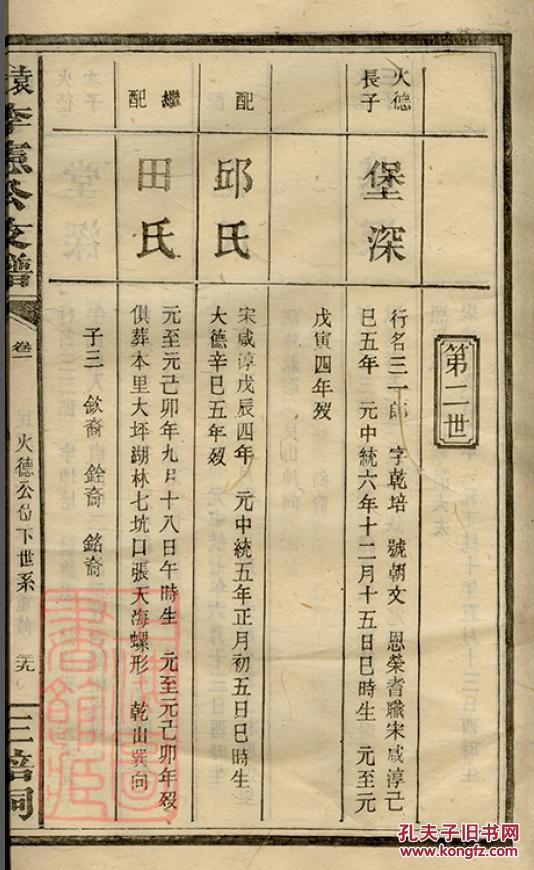 第二世
火德
長子
堡深
行名三一郎 字乾培 號朝文 恩榮耆職宋咸淳己
巳五年 元中統六年十二月十五日巳時生 元至元
戊寅四年歿
配
邱氏
宋咸淳戊辰四年 元中統五年正月初五日巳時生
大德辛巳五年歿
繼
配
田氏
元至元己卯年九月十八日午時生 元至元己卯年歿
俱葬本里大坪湖林七坑口張天海螺形 乾山巽向
子三 欽裔 銓裔 銘裔
李憲公支譜
卷一
火德公位下世系
三培祠
孔夫子旧书网
www.kongfz.com